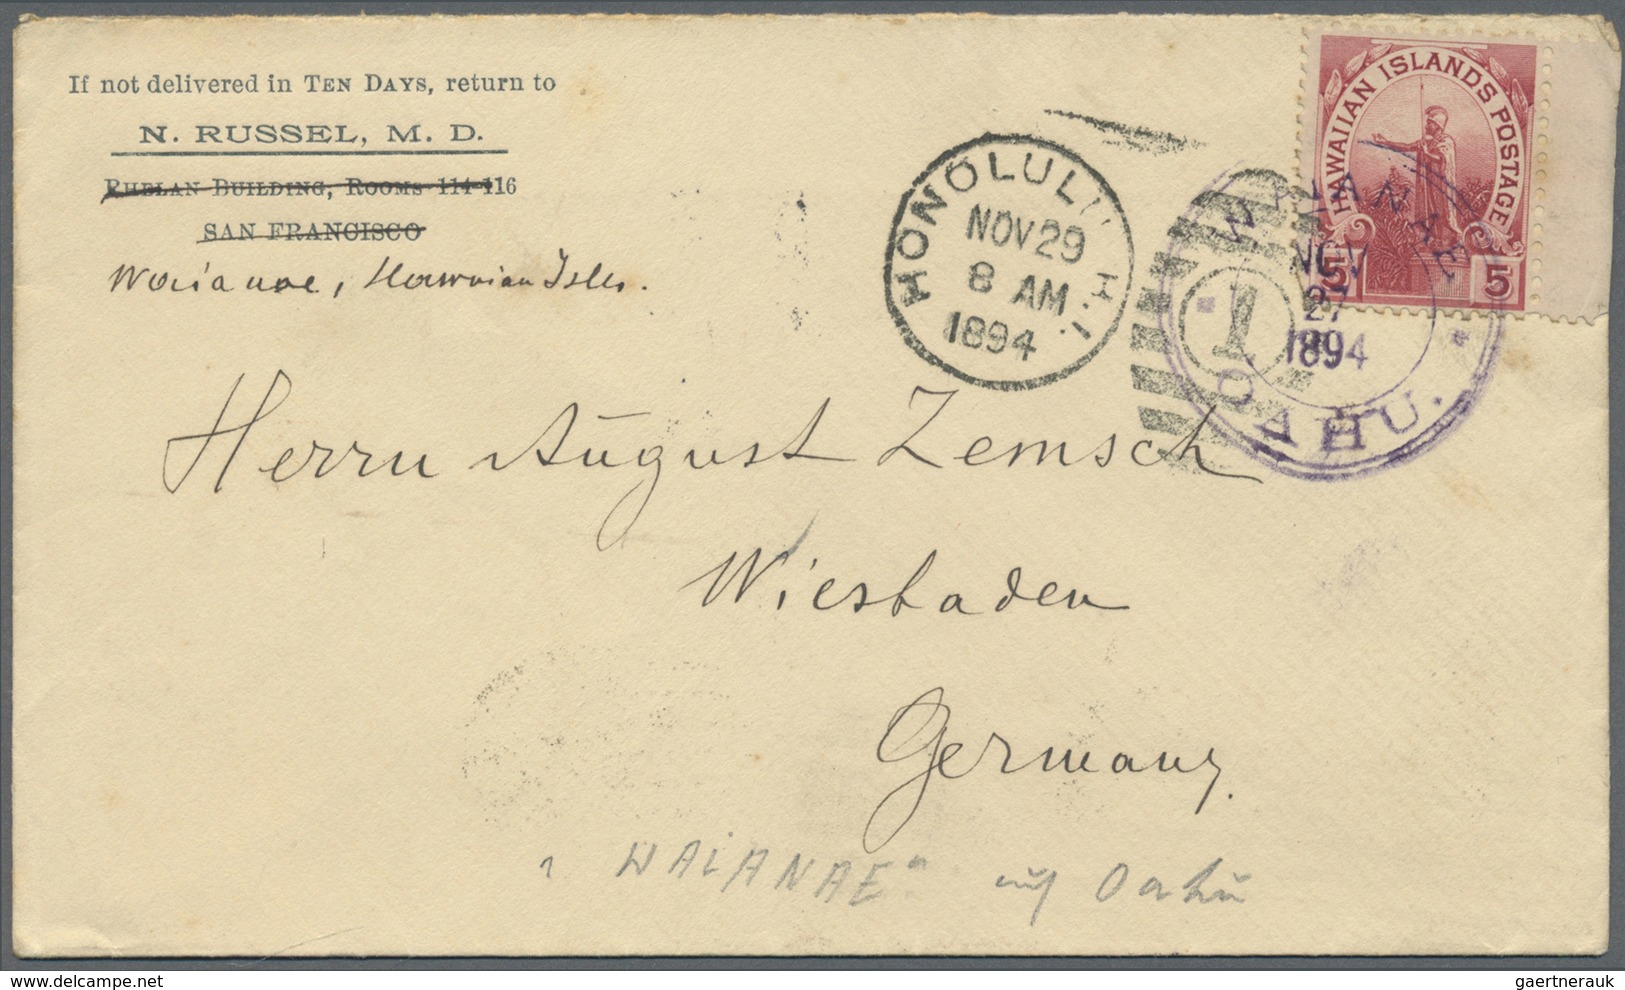 If not delivered in TEN DAYS, return to
N. RUSSEL, M. D.
PHELAN BUILDING, ROOMS 114-116
SAN FRANCISCO
Waianae, Hawaiian Isles.
HONOLULU H.I.
NOV 29
8 AM
1894
1
HAWAIIAN ISLANDS POSTAGE
5 5
WAIANAE
NOV
27
1894
OAHU.
Herrn August Zemsch
Wiesbaden
Germany.
"WAIANAE" auf Oahu
gaertnerauk